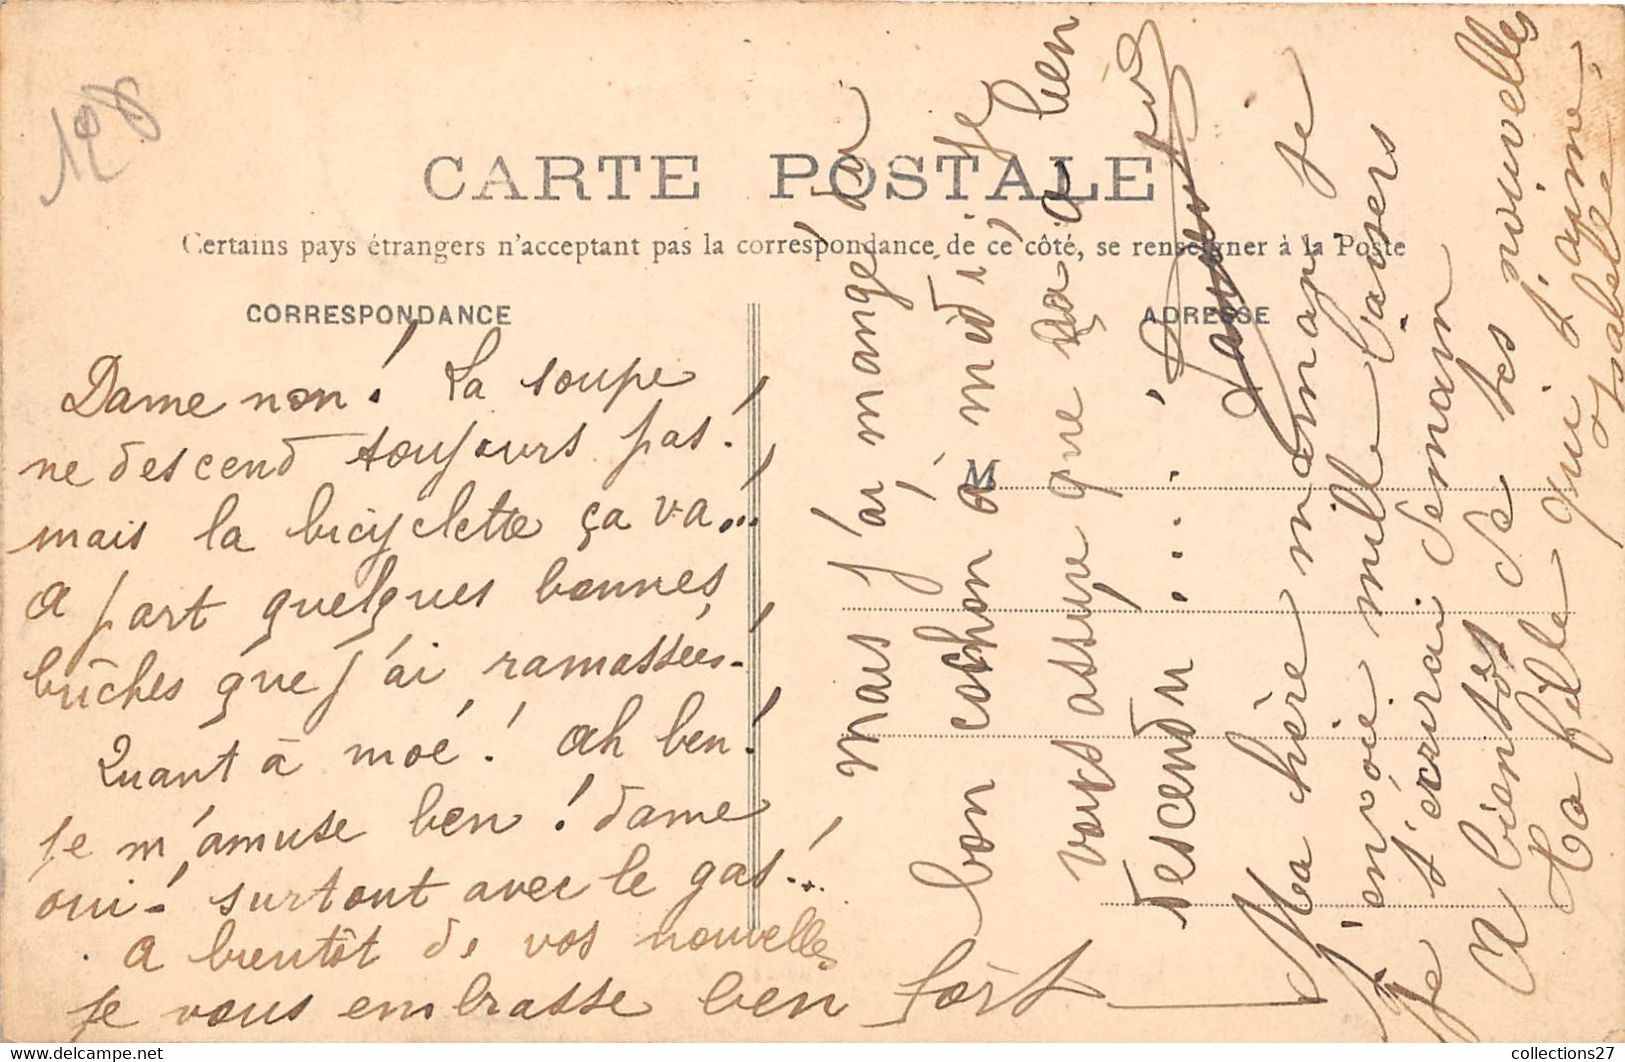 128
CARTE POSTALE
Certains pays étrangers n'acceptant pas la correspondance de ce côté, se renseigner à la Poste
CORRESPONDANCE
ADRESSE
M
Dame non! La soupe
ne descend toujours pas!
mais la bicyclette ça va...!
a part quelques bonnes
bûches que j'ai ramassées.
Quant à moé! ah ben!
je m'amuse ben! dame
oui! surtout avec le gas!..
a bientôt de vos nouvelles
je vous embrasse ben fort
mais j'ai mangé du
bon cochon à midi. Je
vous assure que ça a ben
descendu....!
Ma chère maman je
t'envoie mille baisers
je t'écrirai demain
A bientôt de tes nouvelles
Ta fille qui t'aime,
Isabelle
collections27